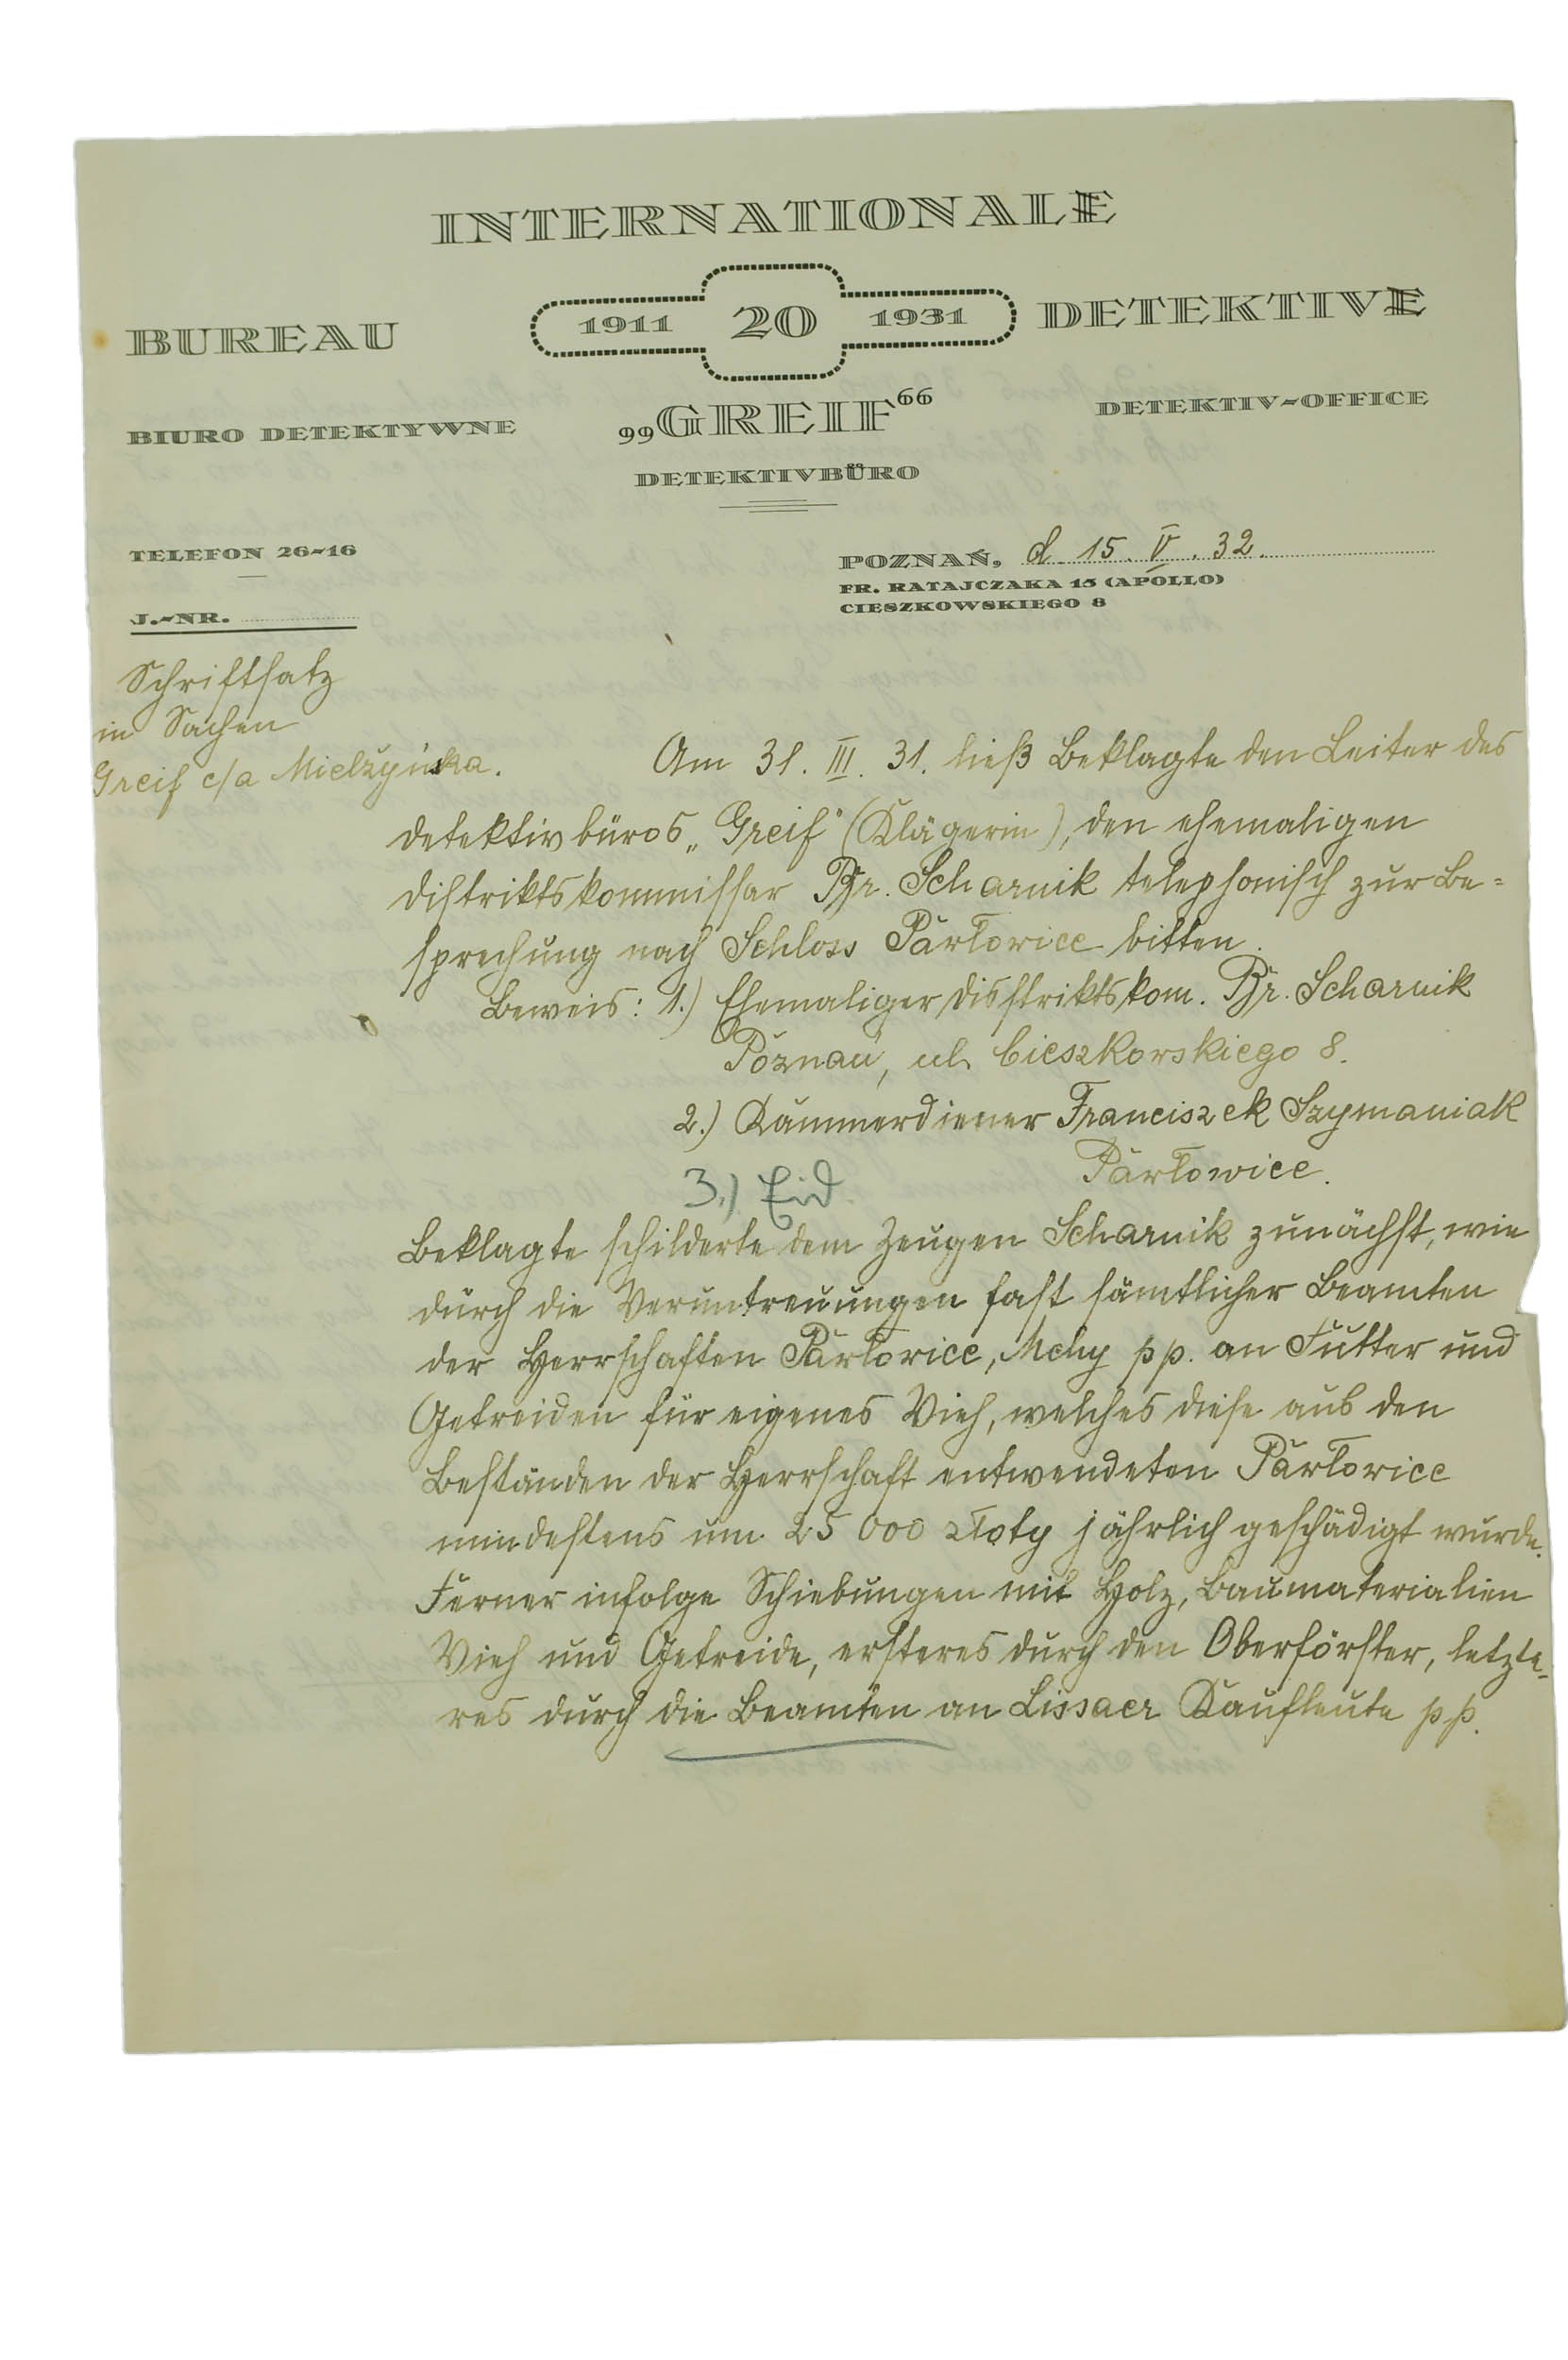 INTERNATIONALE
BUREAU 1911 20 1931 DETEKTIVE
BIURO DETEKTYWNE „GREIF“ DETEKTIV-OFFICE
DETEKTIVBÜRO
TELEFON 26-16
POZNAŃ, d. 15. V. 32.
FR. RATAJCZAKA 15 (APOLLO)
CIESZKOWSKIEGO 8
J.-NR.
Schriftsatz
in Sachen
Greif c/a Mielżyńska.
Am 31. III. 31. ließ Beklagte den Leiter des
Detektivbüros „Greif“ (Klägerin), den ehemaligen
Distriktskommissar Br. Scharnik telephonisch zur Be=
sprechung nach Schloss Pawłowice bitten.
Beweis: 1.) Ehemaliger Distriktskom. Br. Scharnik
Poznań, ul. Cieszkowskiego 8.
2.) Kammerdiener Franciszek Szymaniak
Pawłowice.
3.) Eid.
Beklagte schilderte dem Zeugen Scharnik zunächst, wie
durch die Veruntreuungen fast sämtlicher Beamten
der Herrschaften Pawłowice, Mchy pp. an Futter und
Getreiden für eigenes Vieh, welches diese aus den
Beständen der Herrschaft entwendeten Pawłowice
mindestens um 25 000 złoty jährlich geschädigt wurde.
Ferner infolge Schiebungen mit Holz, Baumaterialien
Vieh und Getreide, ersteres durch den Oberförster, letzte-
res durch die Beamten an Lissaer Kaufleute pp.